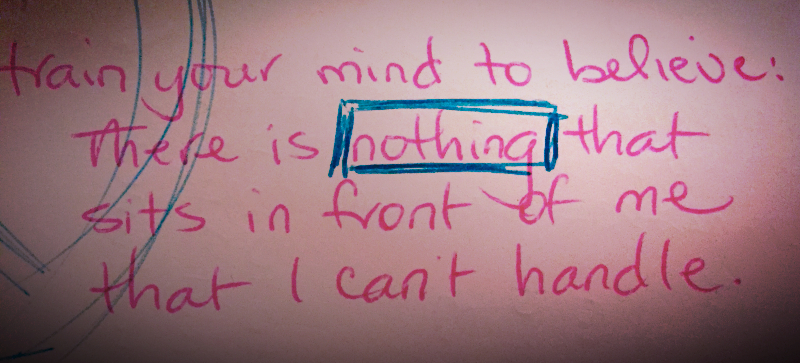 train your mind to believe:
There is nothing that
sits in front of me
that I can't handle.